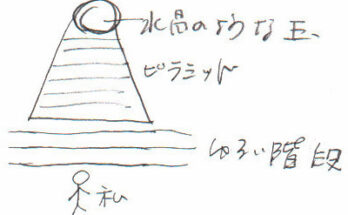 水晶のような玉、
ピラミッド
ゆるい階段
私